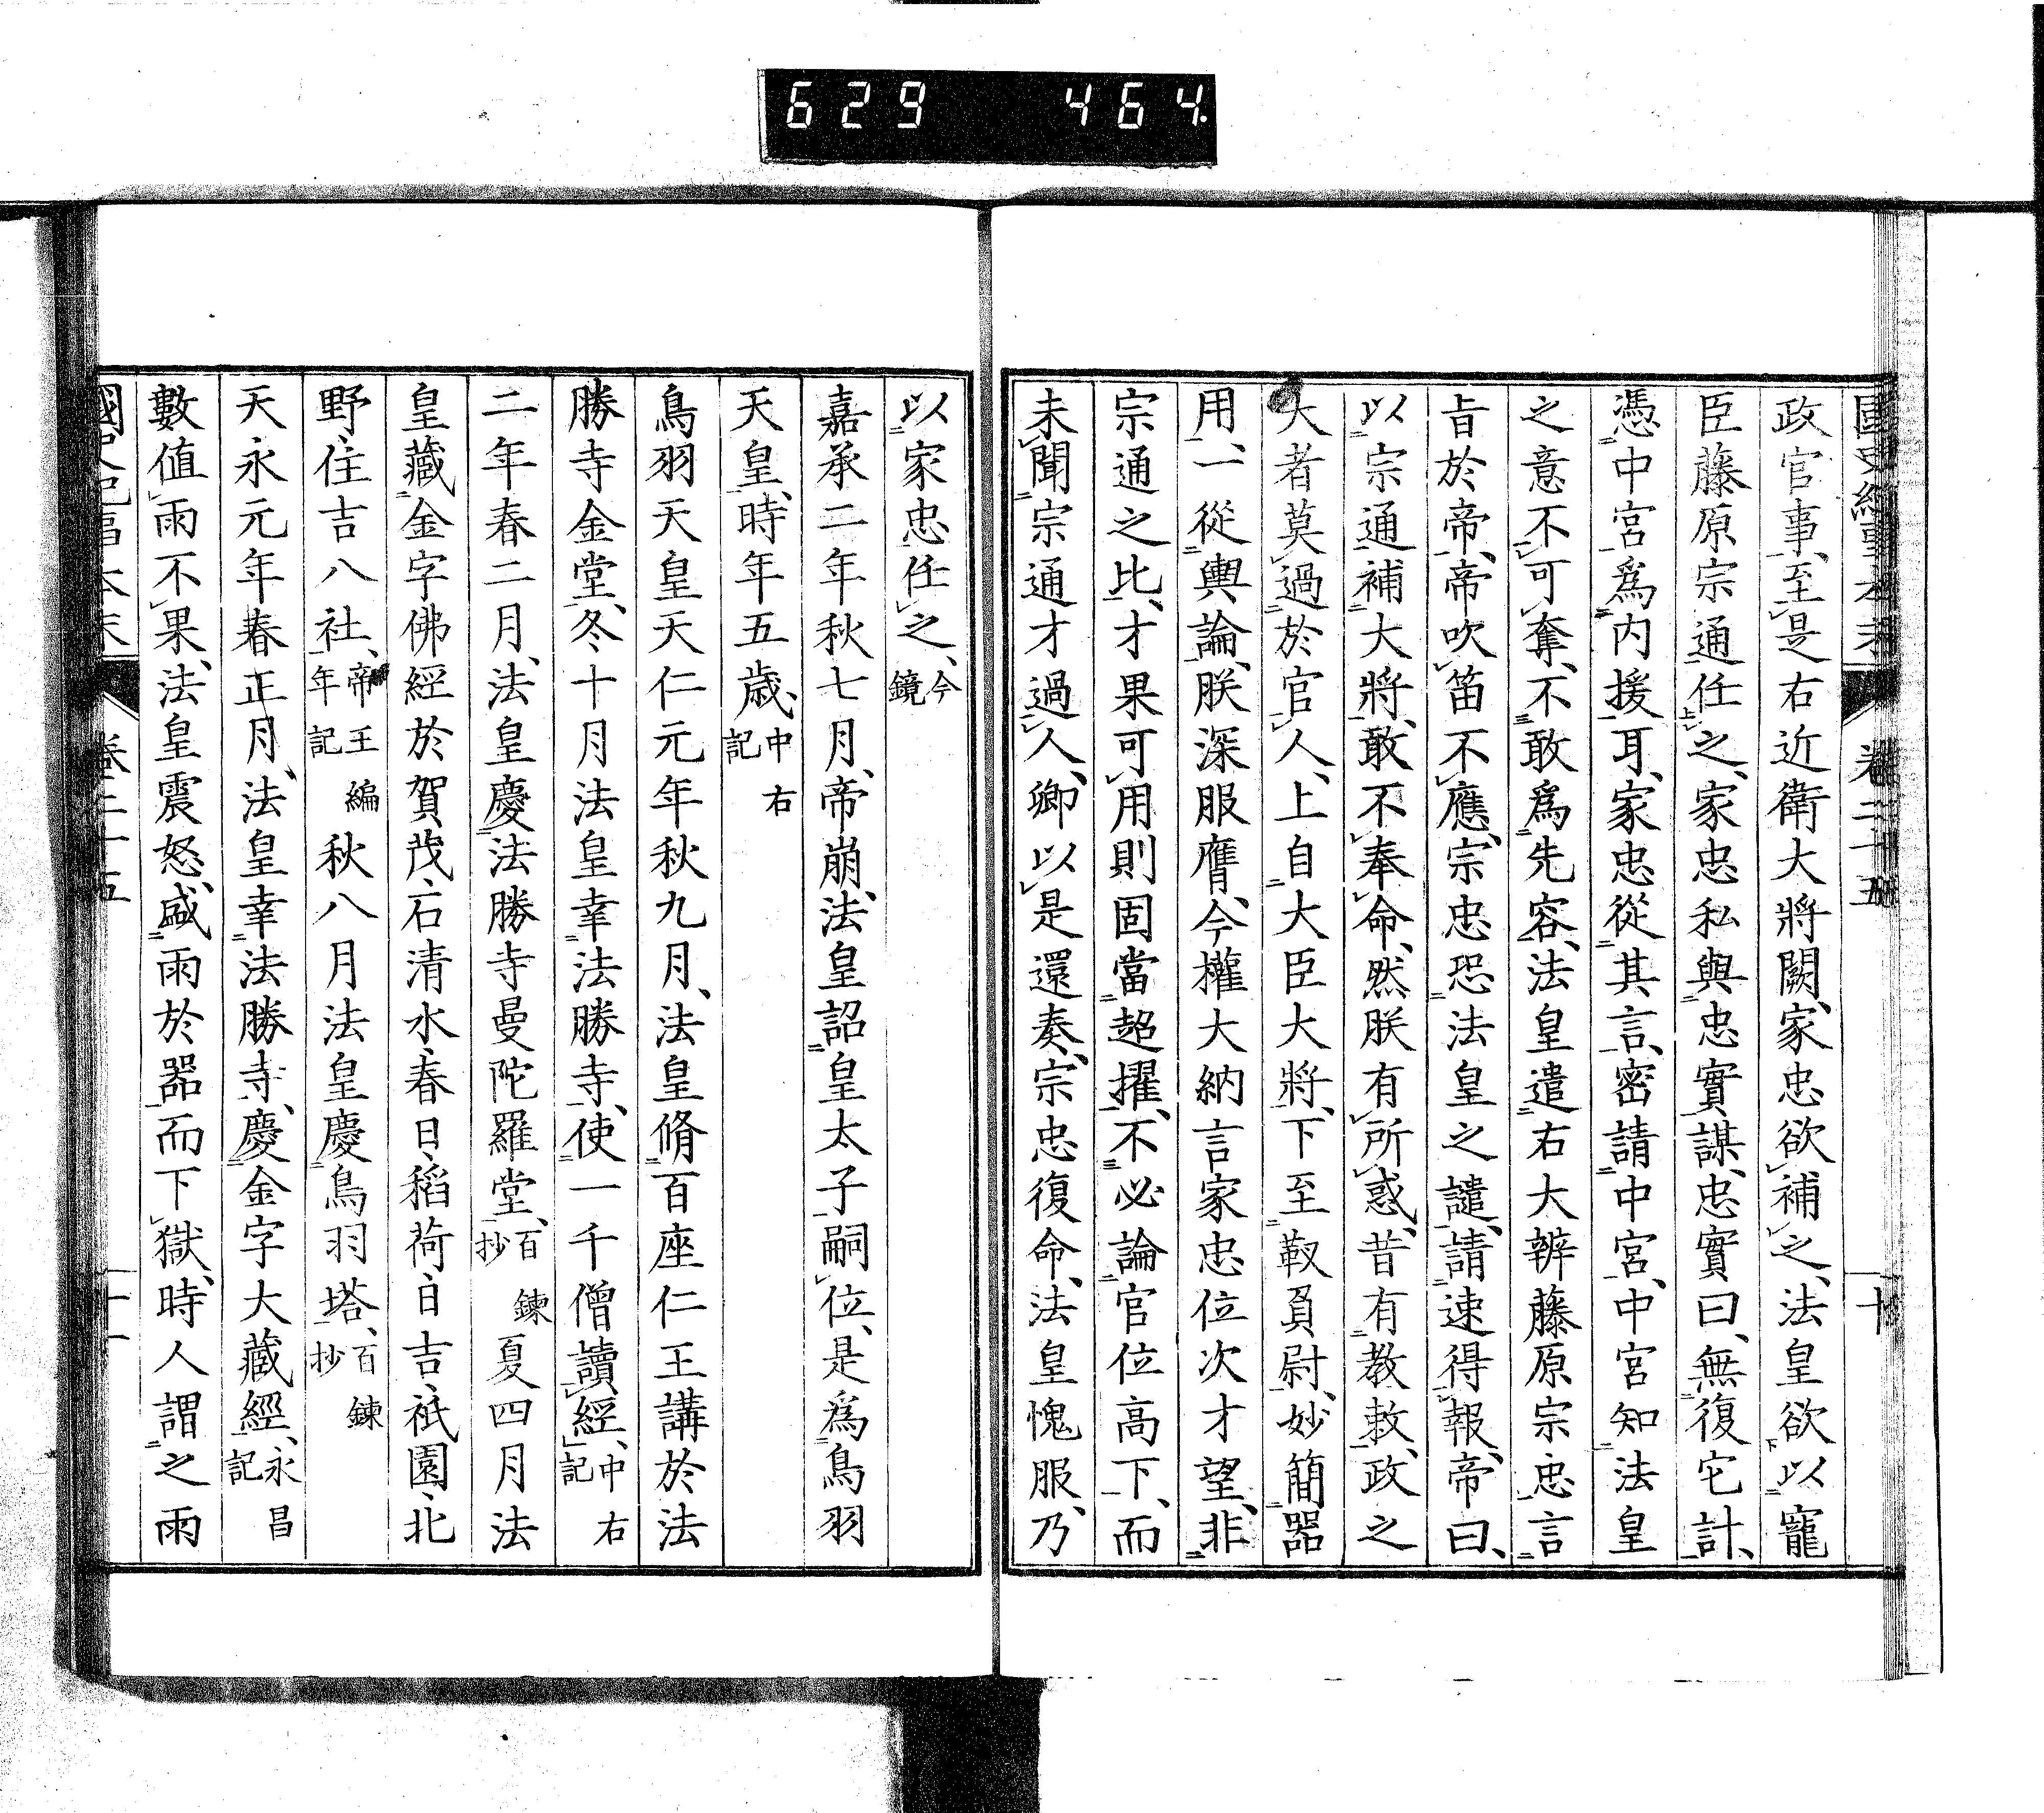 629 464
國史紀事本末 卷二十五 十
政官事、至是右近衛大將闕、家忠欲補之、法皇欲以寵
臣藤原宗通任之、家忠私與忠實謀、忠實曰、無復它計、
憑中宮爲內援耳、家忠從其言、密請中宮、中宮知法皇
之意不可奪、不敢爲先容、法皇遣右大辨藤原宗忠言
旨於帝、帝吹笛不應、宗忠恐法皇之譴、請速得報、帝曰、
以宗通補大將、敢不奉命、然朕有所惑、昔有教敕、政之
大者莫過於官人、上自大臣大將、下至靫負尉、妙簡器
用、一從輿論、朕深服膺、今權大納言家忠位次才望、非
宗通之比、才果可用則固當超擢、不必論官位高下、而
未聞宗通才過人、卿以是還奏、宗忠復命、法皇愧服、乃
以家忠任之、今鏡
嘉承二年秋七月、帝崩、法皇詔皇太子嗣位、是爲鳥羽
天皇、時年五歲、中右記
鳥羽天皇天仁元年秋九月、法皇脩百座仁王講於法
勝寺金堂、冬十月法皇幸法勝寺、使一千僧讀經、中右記
二年春二月、法皇慶法勝寺曼陀羅堂、百鍊抄 夏四月法
皇藏金字佛經於賀茂、石清水、春日、稻荷、日吉、祇園、北
野、住吉八社、帝王編年記 秋八月法皇慶鳥羽塔、百鍊抄
天永元年春正月、法皇幸法勝寺、慶金字大藏經、永昌記
數值雨不果、法皇震怒、盛雨於器而下獄、時人謂之雨
國史紀事本末 卷二十五 十一